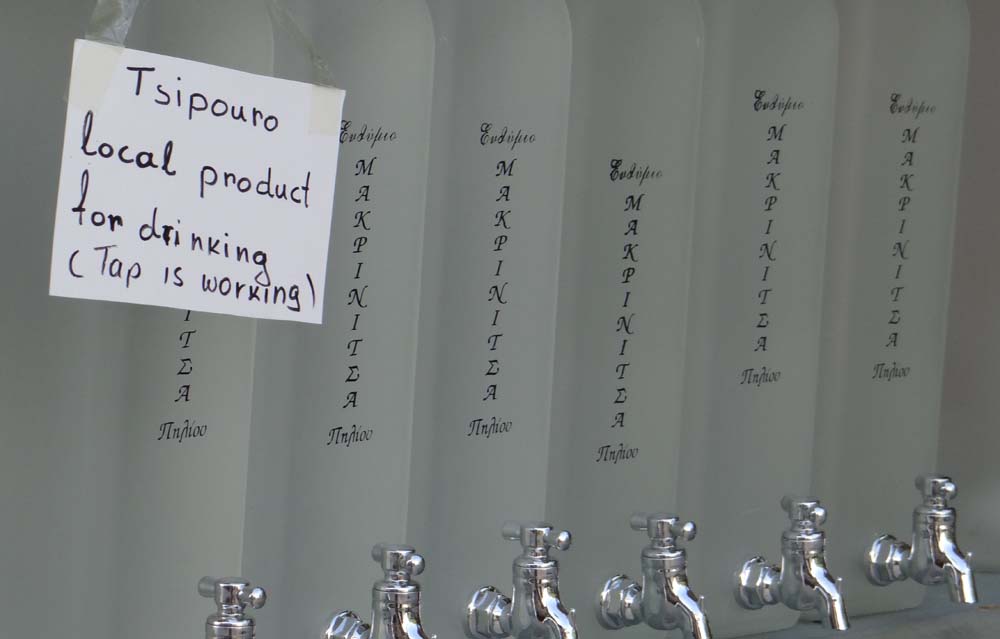 Tsipouro
local product
for drinking
(Tap is working)
ΙΤΣΑ
Πηλίου
Ενθύμιο
ΜΑΚΡΙΝΙΤΣΑ
Πηλίου
Ενθύμιο
ΜΑΚΡΙΝΙΤΣΑ
Πηλίου
Ενθύμιο
ΜΑΚΡΙΝΙΤΣΑ
Πηλίου
Ενθύμιο
ΜΑΚΡΙΝΙΤΣΑ
Πηλίου
Ενθύμιο
ΜΑΚΡΙΝΙΤΣΑ
Πηλίου